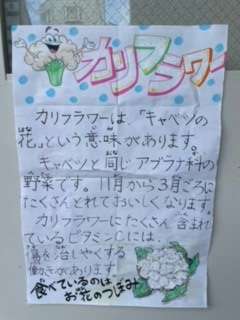 カリフラワー
カリフラワーは、「キャベツの
花」という意味があります。
キャベツと同じアブラナ科の
野菜です。11月から3月ごろに
たくさんとれておいしくなります。
カリフラワーにたくさん含まれ
ているビタミンCには、
傷を治しやすくする
働きがあります。
食べているのは、
お花のつぼみ